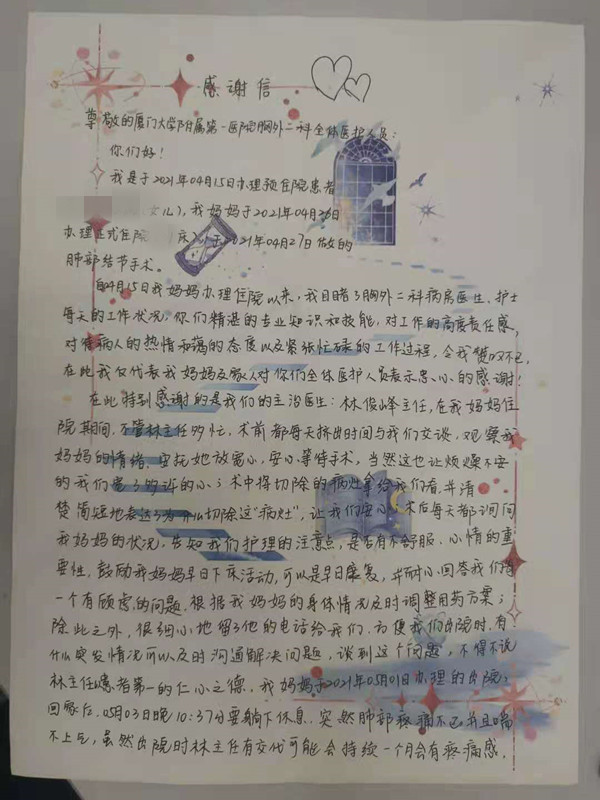 感谢信
尊敬的厦门大学附属第一医院胸外二科全体医护人员：
你们好！
我是于2021年04月15日办理预住院患者
女儿），我妈妈于2021年04月26日
办理正式住院 床）于2021年04月27日做的
肺部结节手术。
自04月15日我妈妈办理住院以来，我目睹了胸外二科病房医生、护士
每天的工作状况，你们精湛的专业知识和技能，对工作的高度责任感，
对待病人的热情和蔼的态度以及紧张忙碌的工作过程，令我赞叹不已，
在此我仅代表我妈妈及家人对你们全体医护人员表示忠心的感谢！
在此特别感谢的是我们的主治医生：林俊峰主任，在我妈妈住
院期间，不管林主任多忙，术前都每天挤出时间与我们交谈，观察我
妈妈的情绪，安抚她放宽心，安心等待手术，当然这也让烦燥不安
的我们宽了的心；术中将切除的病灶拿给我们看，并清
楚简短地表达了为什么切除这“病灶”，让我们安心；术后每天都询问
我妈妈的状况，告知我们护理的注意点，是否有不舒服，心情的重
要性，鼓励我妈妈早日下床活动，可以是早日康复，并耐心回答我们每
一个有顾虑的问题，根据我妈妈的身体情况及时调整用药方案；
除此之外，很细心地留了他的电话给我们，方便我们出院时，有
什么突发情况可以及时沟通解决问题，谈到这个问题，不得不说
林主任患者第一的仁心之德，我妈妈于2021年05月01日办理的出院，
回家后，05月03日晚10:37分要躺下休息，突然肺部疼痛不已并且喘
不上气，虽然出院时林主任有交代可能会持续一个月会有疼痛感，